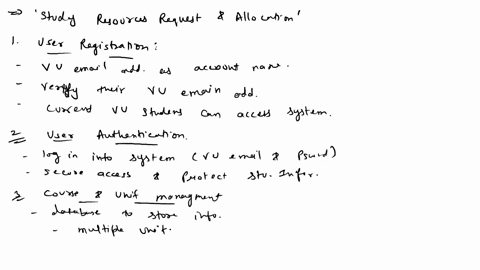 ⇒ 'Study Resources Request & Allocation'
1. User Registration:
- VU email add. as account name.
- Verify their VU emain add.
- Current VU Student can access system.
2. User Authentication.
- log in into system (VU email & Pswd)
- secure access & Protect stu. Infor.
3. Course & Unit managment
- database to store info.
- multiple unit.